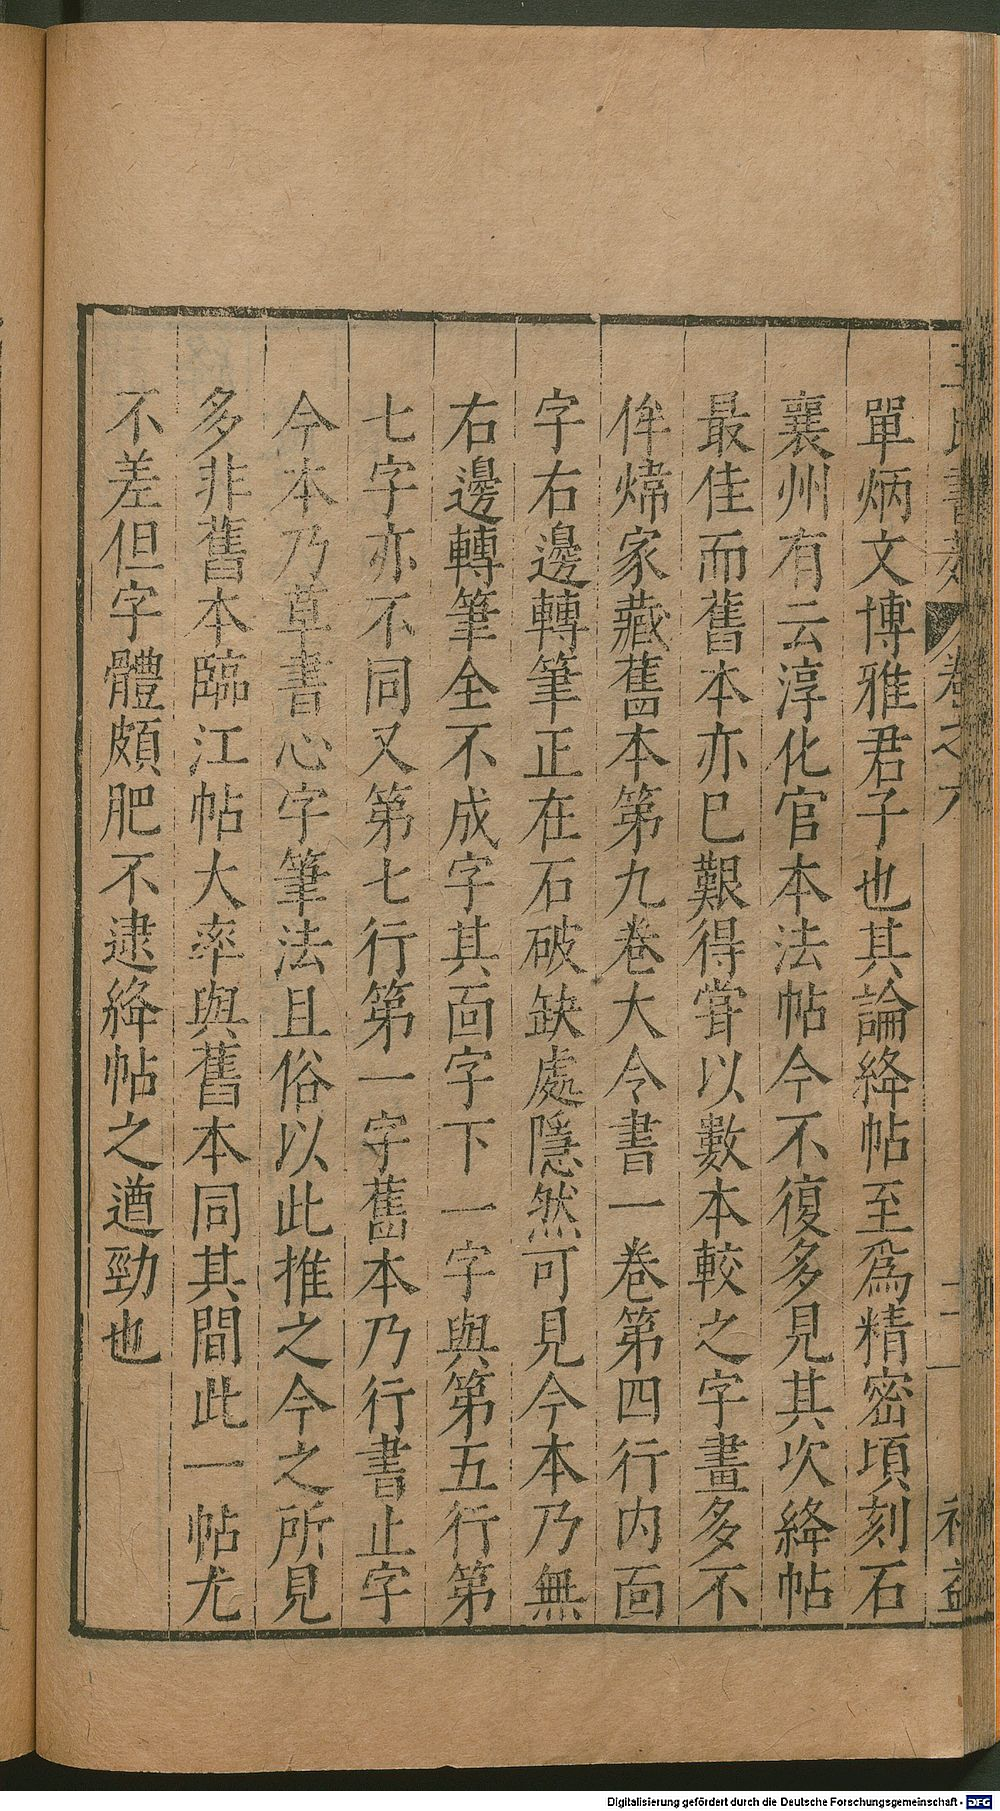 單炳文博雅君子也其論絳帖至爲精密頃刻石
襄州有云淳化官本法帖今不復多見其次絳帖
最佳而舊本亦已艱得甞以數本較之字畫多不
侔煒家藏舊本第九卷大令書一卷第四行内靣
字右邊轉筆正在石破缺處隱然可見今本乃無
右邊轉筆全不成字其靣字下一字與第五行第
七字亦不同又第七行第一字舊本乃行書止字
今本乃草書心字筆法且俗以此推之今之所見
多非舊本臨江帖大率與舊本同其間此一帖尤
不差但字體頗肥不逮絳帖之遒勁也
卷之六
Digitalisierung gefördert durch die Deutsche Forschungsgemeinschaft - DFG